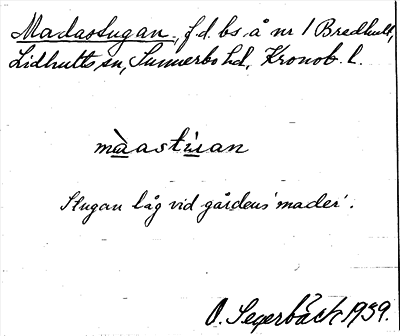 Madastugan, f.d. bs å nr 1 Bredhult,
Lidhults sn, Sunnerbo hd, Kronob. l.
màastu̇an
Stugan låg vid gårdens 'mader'.
O. Segerbäck 1939.